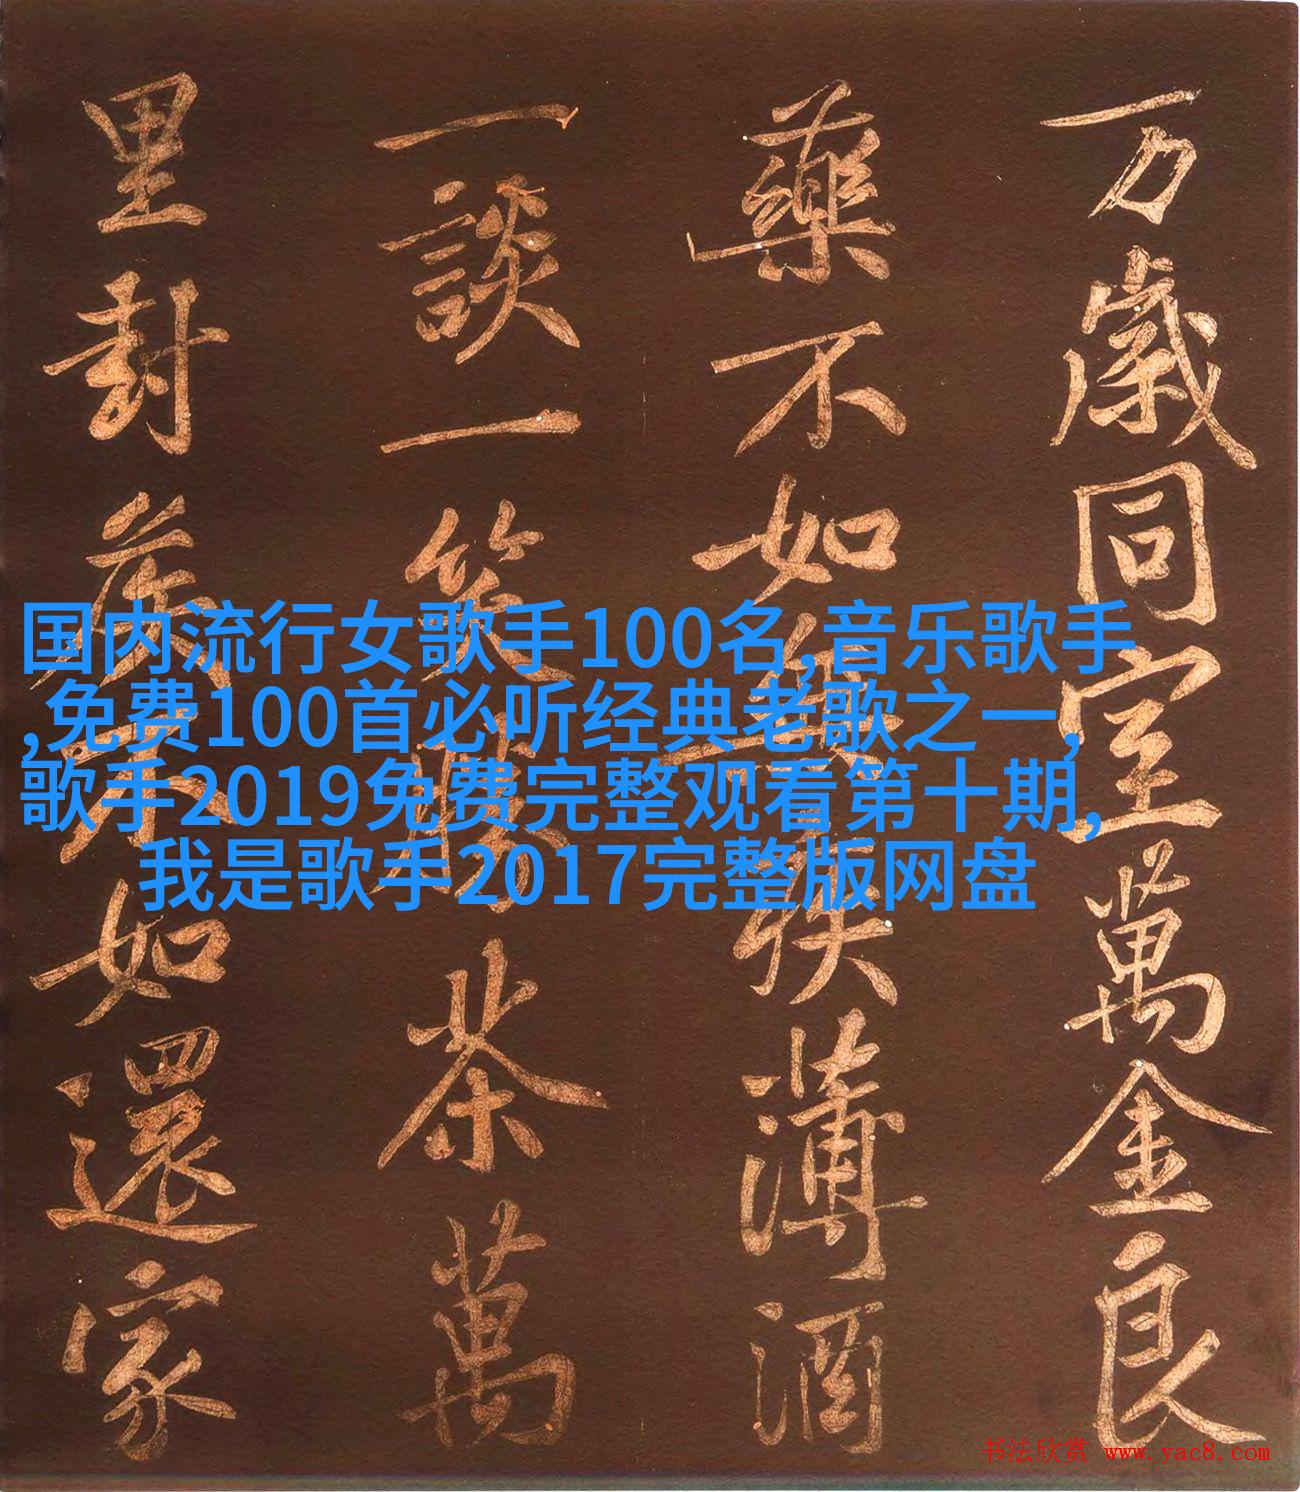 万歲同室萬金良
藥不如無疾薄酒
一談一笑勝茶萬
里封侯不如還家
国内流行女歌手100名,音乐歌手
,免费100首必听经典老歌之一,
歌手2019免费完整观看第十期,
我是歌手2017完整版网盘
书法欣赏 www.yac8.com